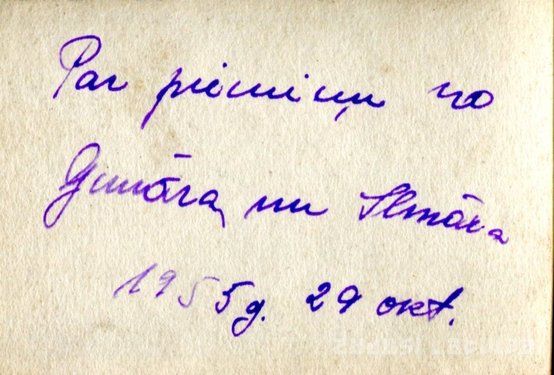 Par piemiņu no
Gunāra, un Ilmāra
1955g. 29 okt.